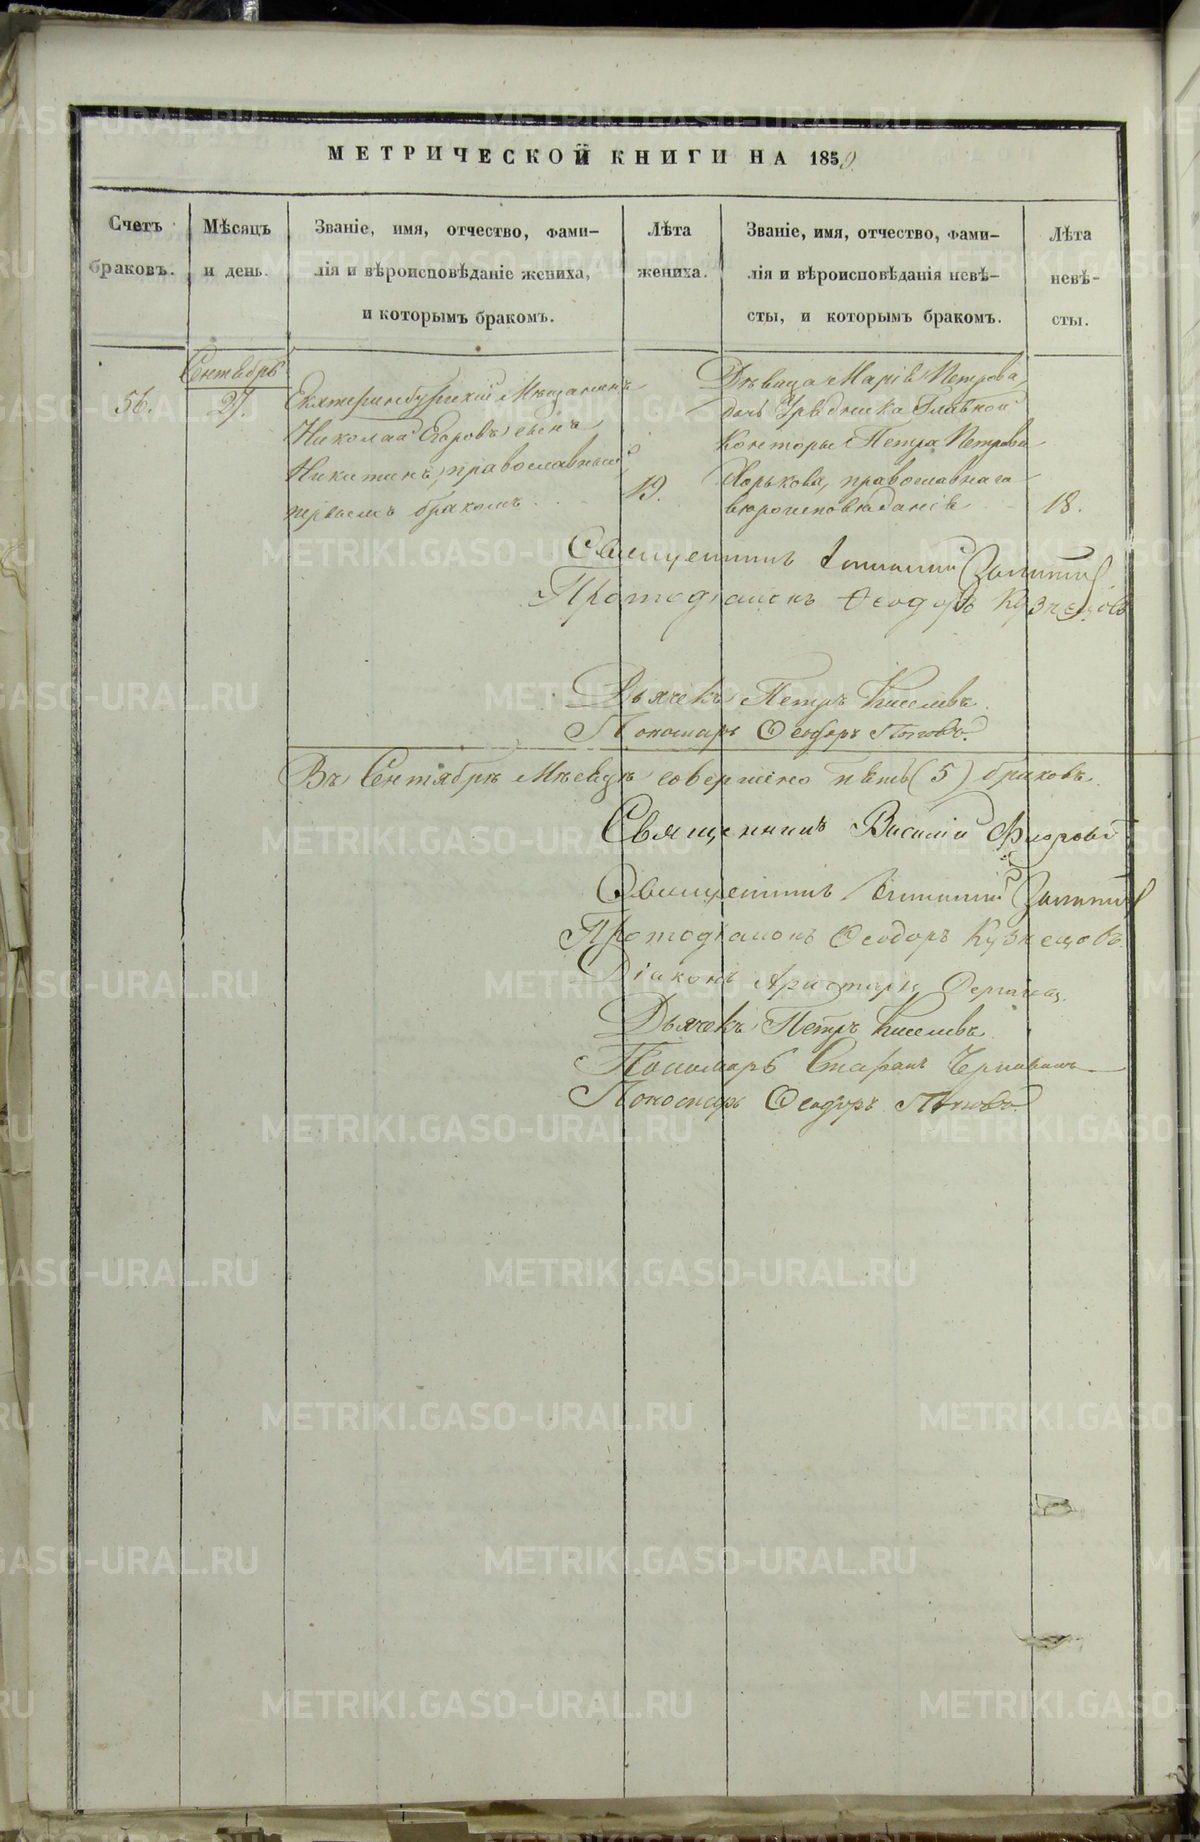 МЕТРИЧЕСКОЙ КНИГИ НА 1859
Счетъ браковъ.
Мѣсяцъ и день.
Званіе, имя, отчество, фами-
лія и вѣроисповѣданіе жениха,
и которымъ бракомъ.
Лѣта
жениха.
Званіе, имя, отчество, фами-
лія и вѣроисповѣданія невѣ-
сты, и которымъ бракомъ.
Лѣта
невѣ-
сты.
Сентябрь
56.
27.
Екатеринбургскій Мѣщанинъ
Николай Егоровъ сынъ
Никитинъ, православный
первымъ бракомъ
19.
Дѣвица Марія Петрова,
дочь Урядника Главной
Конторы Петра Петрова
Хорькова, православнаго
вѣроисповѣданія
18.
Священникъ
Протодіаконъ Ѳеодоръ Кузнецовъ
Дьячекъ Петръ Киселевъ
Пономарь Ѳеодоръ Поповъ.
Въ Сентябрѣ Мѣсяцѣ совершено пять (5) браковъ.
Священникъ Василій Флоровскій
Священникъ
Протодіаконъ Ѳеодоръ Кузнецовъ.
Діаконъ Аристархъ
Дьячекъ Петръ Киселевъ
Пономарь Стефанъ
Пономарь Ѳеодоръ Поповъ.
METRIKI.GASO-URAL.RU